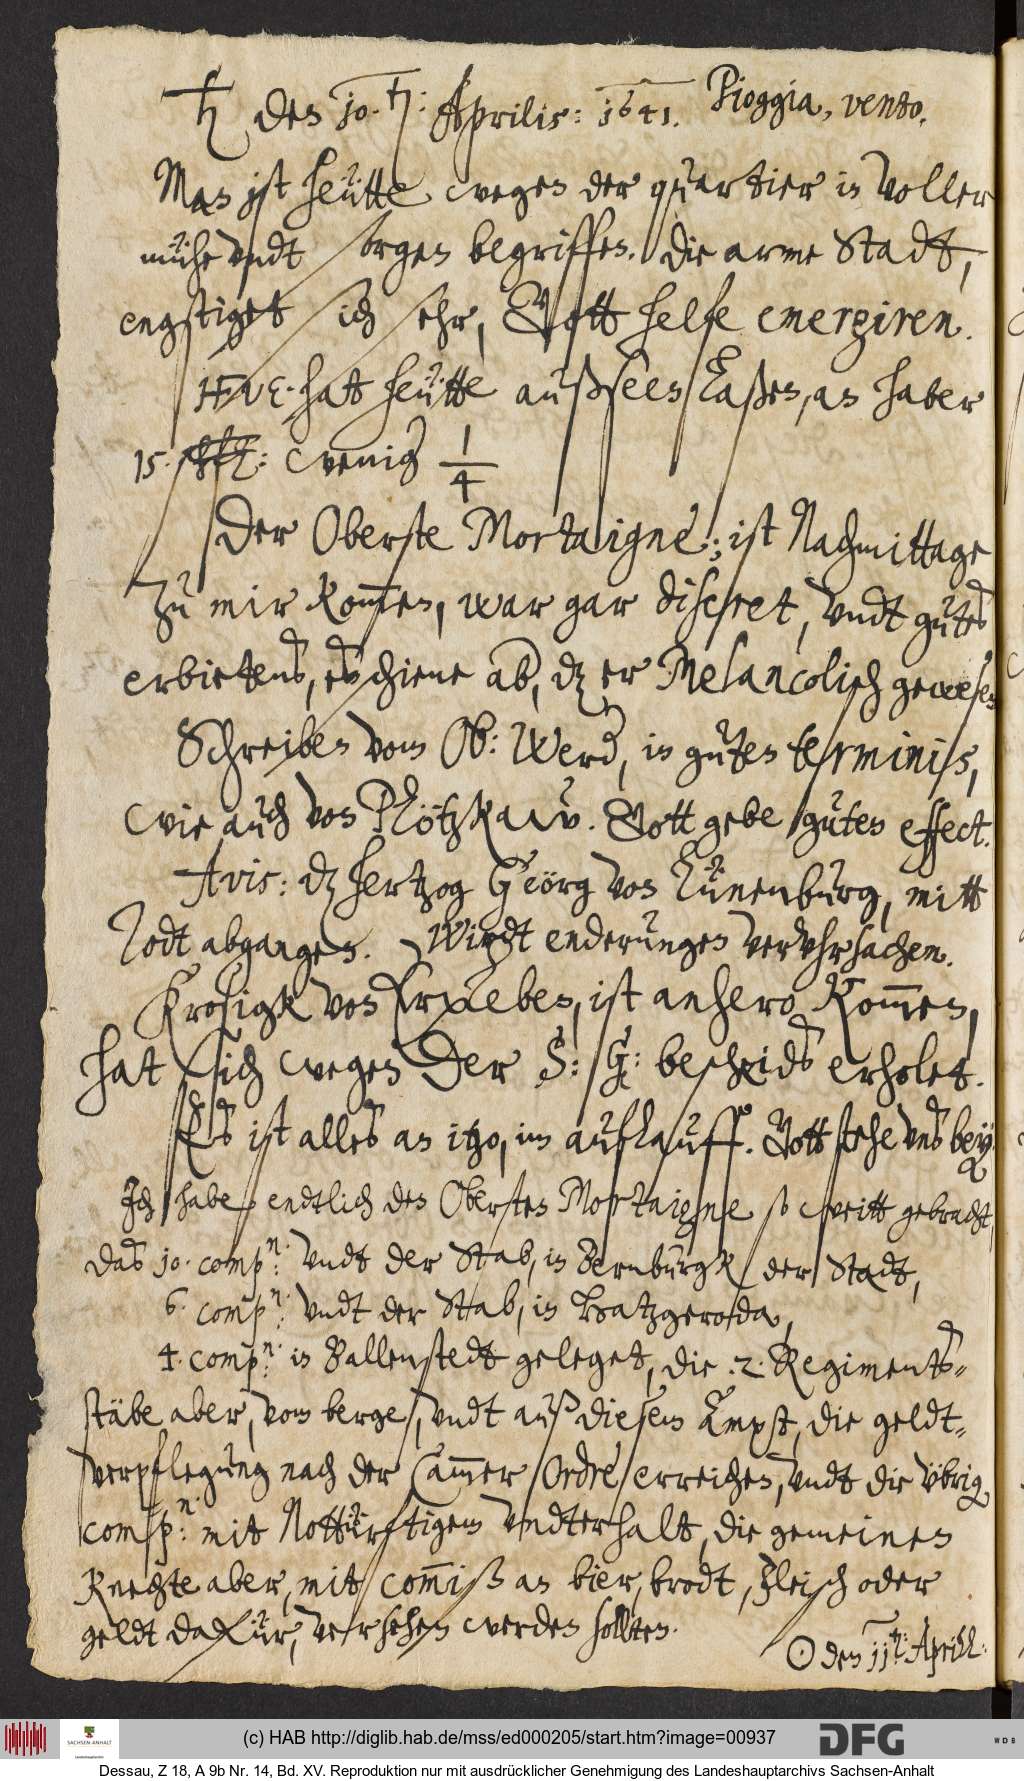 ♄ den 10. t: Aprilis: 1641. Pioggia, vento.
Man ist heütte wegen der quartier in voller
mühe vndt sorgen begriffen. Die arme Stadt,
engstiget sich sehr, Gott helfe emergiren.
hatt heütte außseen laßen, an haber
15. wenig 1/4
Der Oberste Mortaigne: ist Nachmittage
zu mir kommen, war gar discret, vndt gutes
erbietens, es schiene ab, dz er Melancolisch gewesen
Schreiben vom Ob: Werder, in guten terminis,
wie auch von Plötzkaw. Gott gebe guten effect.
Avis: dz hertzog Geörg von Lünenburg, mitt
Todt abgangen. Wirdt enderungen veruhrsachen.
Krosigk von Erxleben, ist anhero kommen,
hat sich wegen der S: G: bescheids erholet.
Es ist alles an itzo, im auflauff. Gott stehe vns bey.
Ich habe endtlich den Obersten Mortaigne so weitt gebracht,
das 10. comp.n: vndt der Stab, in Bernburgk der Stadt,
6. comp.n: vndt der Stab, in Hatzgeroda,
4. comp.n: in Ballenstedt geleget, die .2. Regiments-
stäbe aber, vom berge, vndt auß diesem Ampt, die geldt-
verpflegung nach der Cammer Ordre erreichen, vndt die übrig.
comp.n: mit Notturftigem vndterhalt, die gemeinen
Knechte aber, mit commiß an bier, brodt, fleisch oder
geldt dafür, versehen werden sollten.
☉ den 11t: Aprill:
(c) HAB http://diglib.hab.de/mss/ed000205/start.htm?image=00937
SACHSEN-ANHALT
DFG
WDB
Dessau, Z 18, A 9b Nr. 14, Bd. XV. Reproduktion nur mit ausdrücklicher Genehmigung des Landeshauptarchivs Sachsen-Anhalt